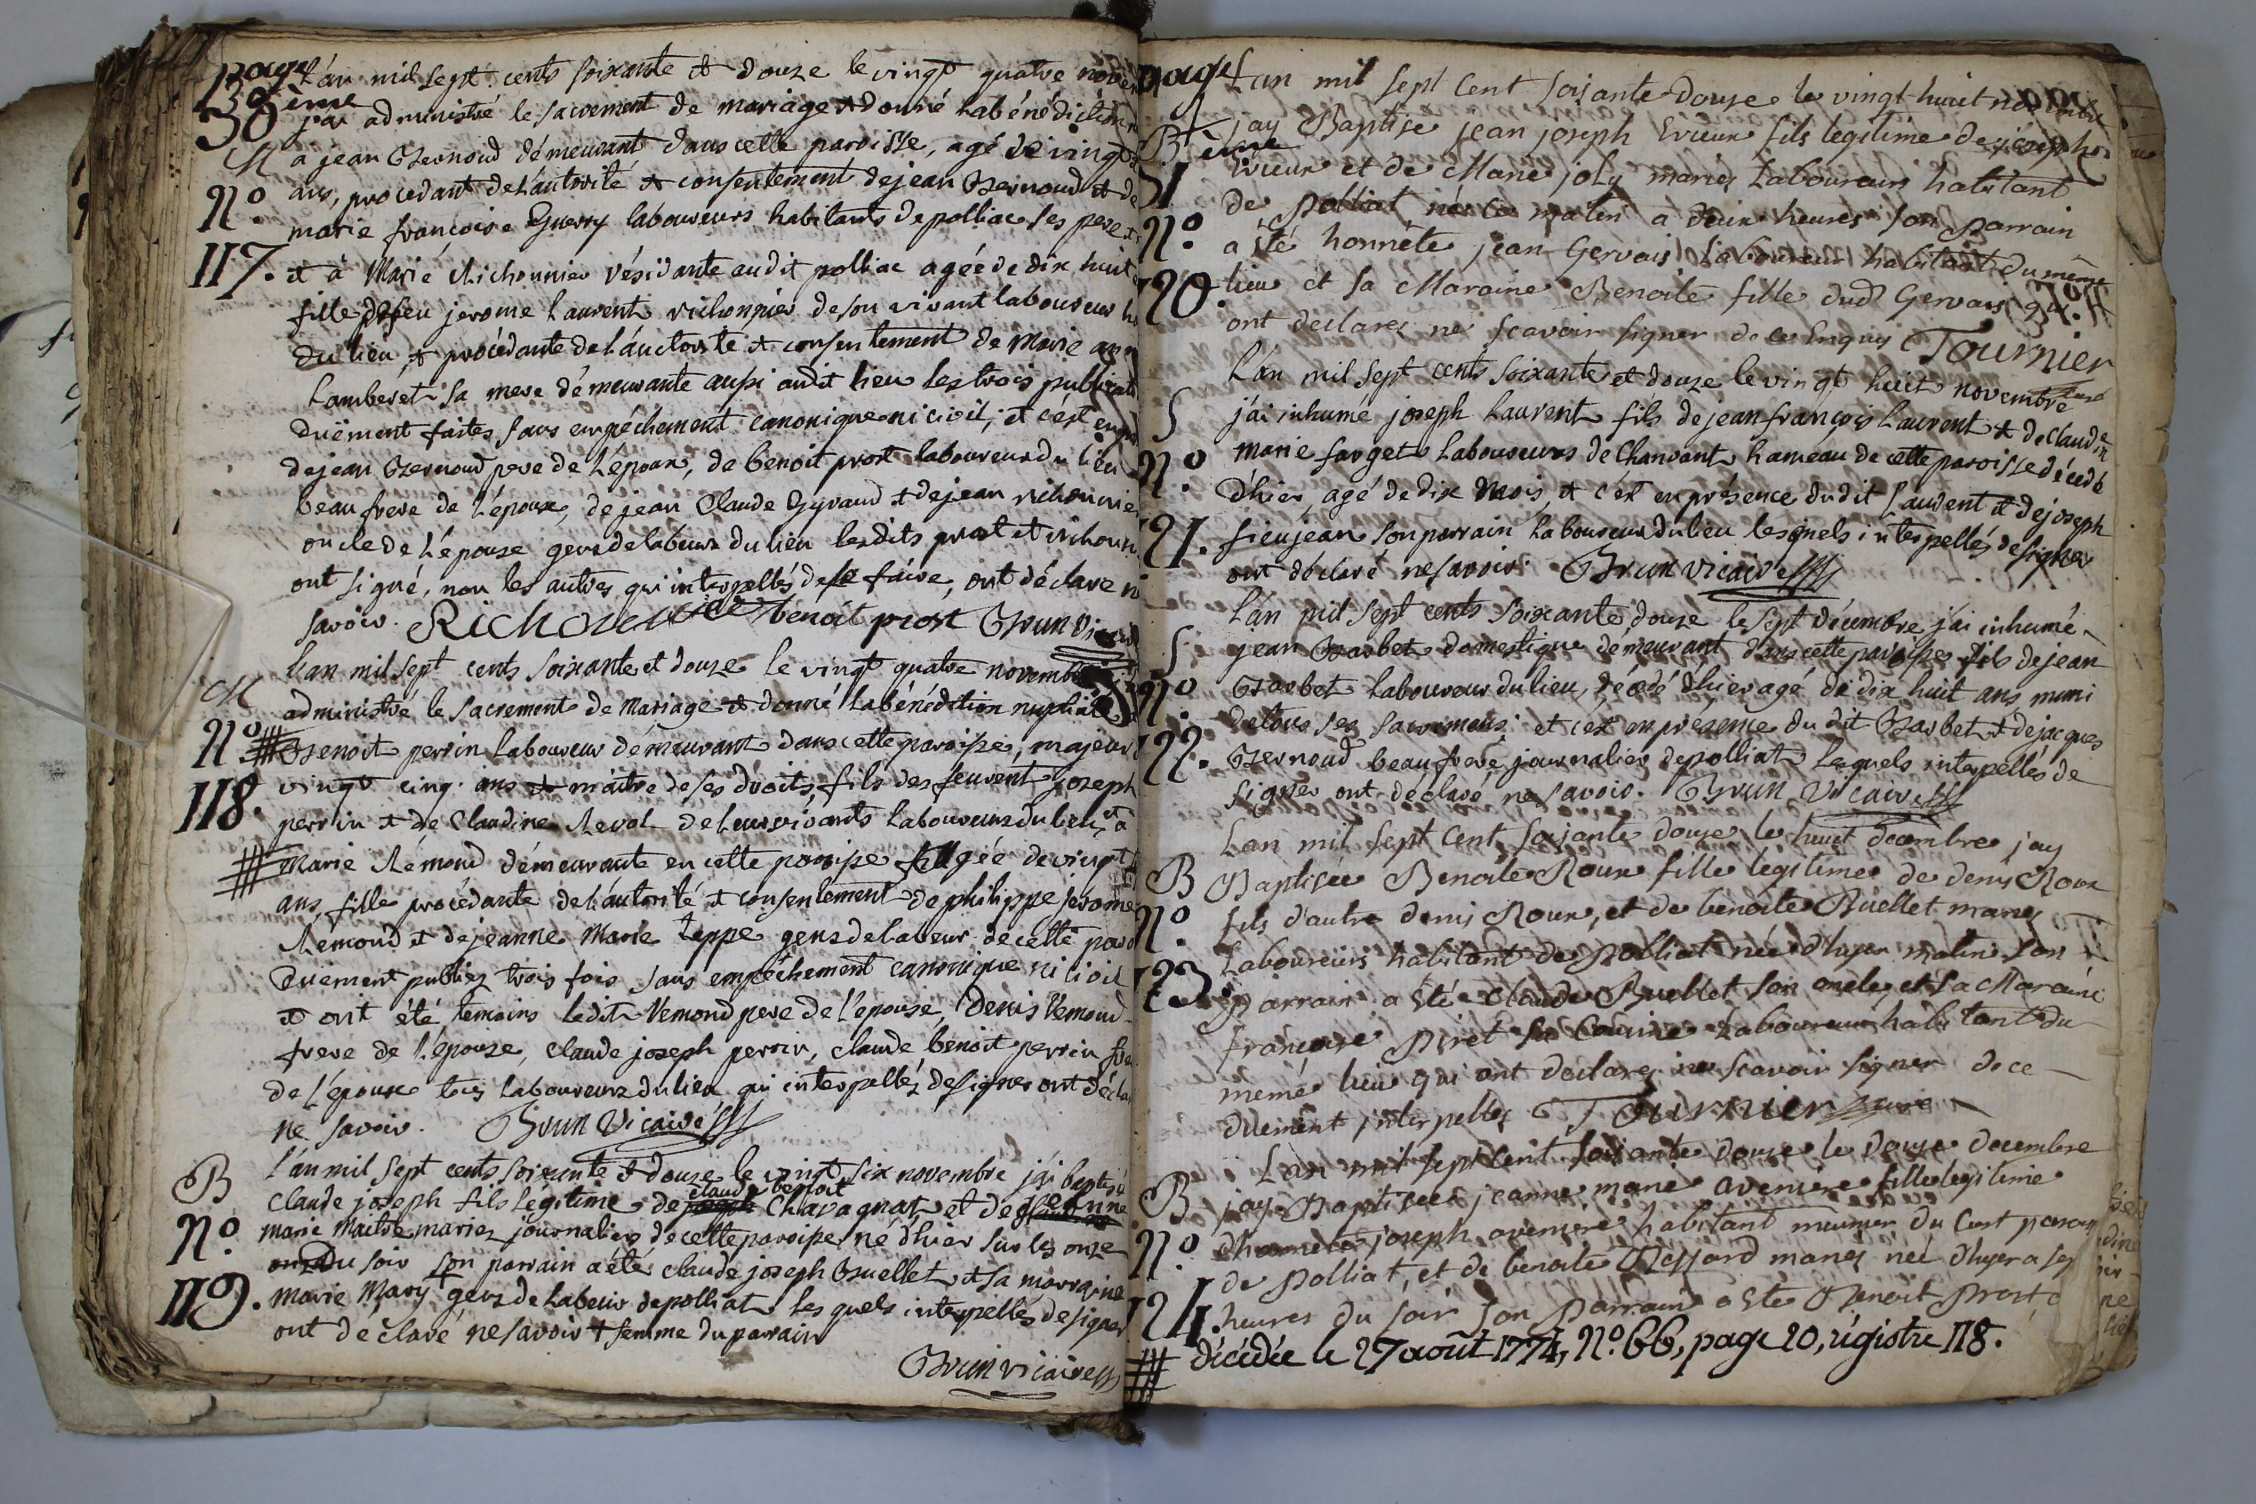 Page
30ème
L'an mil sept cents soixante et douze le vingt quatre
j'ai administré le sacrement de mariage et donné la bénédiction
M
a jean Bernoud démeurant dans cette paroisse, agé de vingt
ans, procédant de l'autorité et consentement de jean Bernoud et de
N°
marie françoise Guerry laboureurs habitants de polliac ses pere et
117.
et à Marie Richonnier résidante audit polliac agée de dix huit
fille defeu jerome Laurent richonnier de son vivant laboureur
du lieu, et procédante de l'auctorité et consentement de Marie
Lamberet sa mere démeurante aussi audit lieu les trois
duëment faites sans empéchement canonique ni civil, et c'est
de jean Bernoud pere de L'époux, de benoit prost laboureur du lieu
beau frere de L'époux, de jean Claude Gyraud et de jean richonnier
oncle de L'épouse gens de labeur du lieu lesdits prost et
ont signé, non les autres qui interpellés de le faire, ont déclaré
savoir. benoit prost Brun
L'an mil sept cents soixante et douze le vingt quatre
M
administré le sacrement de Mariage et donné la bénédition nuptiale
N°
Benoit perrin laboureur démeurant dans cette paroisse, majeur
118.
vingt cinq ans et maitre de ses droits, fils des feurent joseph
perrin et de Claudine Revol de leurs vivants laboureurs du lieu, et à
Marie Rémond démeurante en cette paroisse agée de vingt
ans, fille procédante de l'autorité et consentement de philippe jérome
Rémond et de jeanne Marie teppe gens de labeur de cette
duement publiez trois fois sans empéchement canonique ni civil
et ont été témoins ledit Remond pere de l'épouse, Denis Remond
frere de l'épouse, Claude joseph perrin, claude benoit perrin
de L'époux tous laboureurs du lieu qui interpellés de signer ont
ne savoir. Brun Vicaire
B
L'an mil sept cents soixante et douze le vingt six novembre j'ai baptisé
claude benoit
Claude joseph fils légitime de Chavagnat et de
N°
marie Maitre mariez journaliers de cette paroisse né d'hier sur les onze
du soir son parrain a été claude joseph Buellet et sa marraine
119.
marie Mary gens de labeur de polliat les quels interpellés de signer
ont déclaré ne savoir et femme du parrain
Brun vicaire
page
31ème
L'an mil sept cent soixante douze le vingt huit novembre
B
j'ay Baptisé jean joseph Vrieux fils legitime de joseph
Vrieux et de Marie joly mariés laboureurs habitant
de Polliat né ce matin a deux heures son parrain
N°
a été honnête jean Gervais laboureur habitant du même
120.
lieu et sa Maraine Benoite fille dud Gervais qui
ont declarez ne scavoir signer de ce enquis Tournier
L'an mil sept cents soixante et douze le vingt huit novembre
S
j'ai inhumé joseph Laurent fils de jean françois Laurent et de Claudine
N°
marie farget Laboureurs de Chanvant hameau de cette paroisse décédé
d'hier, agé de dix mois, et c'est en présence du dit Laurent et de joseph
121.
fieujean son parrain laboureur du lieu lesquels interpellés de signer
ont déclaré ne savoir. Brun Vicaire
L'an mil sept cents soixante douze le sept décembre j'ai inhumé
S
jean Barbet domestique démeurant dans cette paroisse fils de jean
N°
Barbet laboureur du lieu, décédé d'hier agé de dix huit ans, muni
de tous ses sacremens; et c'est en présence du dit Barbet et de jacques
122.
Bernoud beau frere journalier de polliat lesquels interpellés de
signer ont déclaré ne savoir. Brun Vicaire
L'an mil sept cent soixante douze le huit decembre jay
B
Baptisée Benoite Roux fille légitime de denis Roux
N°
fils d'autre denis Roux, et de benoite Buellet mariés
Laboureurs habitant de Polliat née d'hyer matin son
123.
parrain a été Claude Buellet son oncle, et sa Maraine
françoise Piret sa Cousine laboureurs habitant du
meme lieu qui ont declarez ne scavoir signer de ce
duement interpellés Tournier curé
L'an mil sept cent soixante douze le douze decembre
B
jay Baptisée jeanne marie aveniere fille legitime
N°
d'honnete joseph aveniere habitant meunier du
de Polliat, et de benoite mariés née d'hyer a
124.
heures du soir son Parrain a été Benoit Prost
décédée le 27 août 1774, N°. 66, page 20, régistre 118.